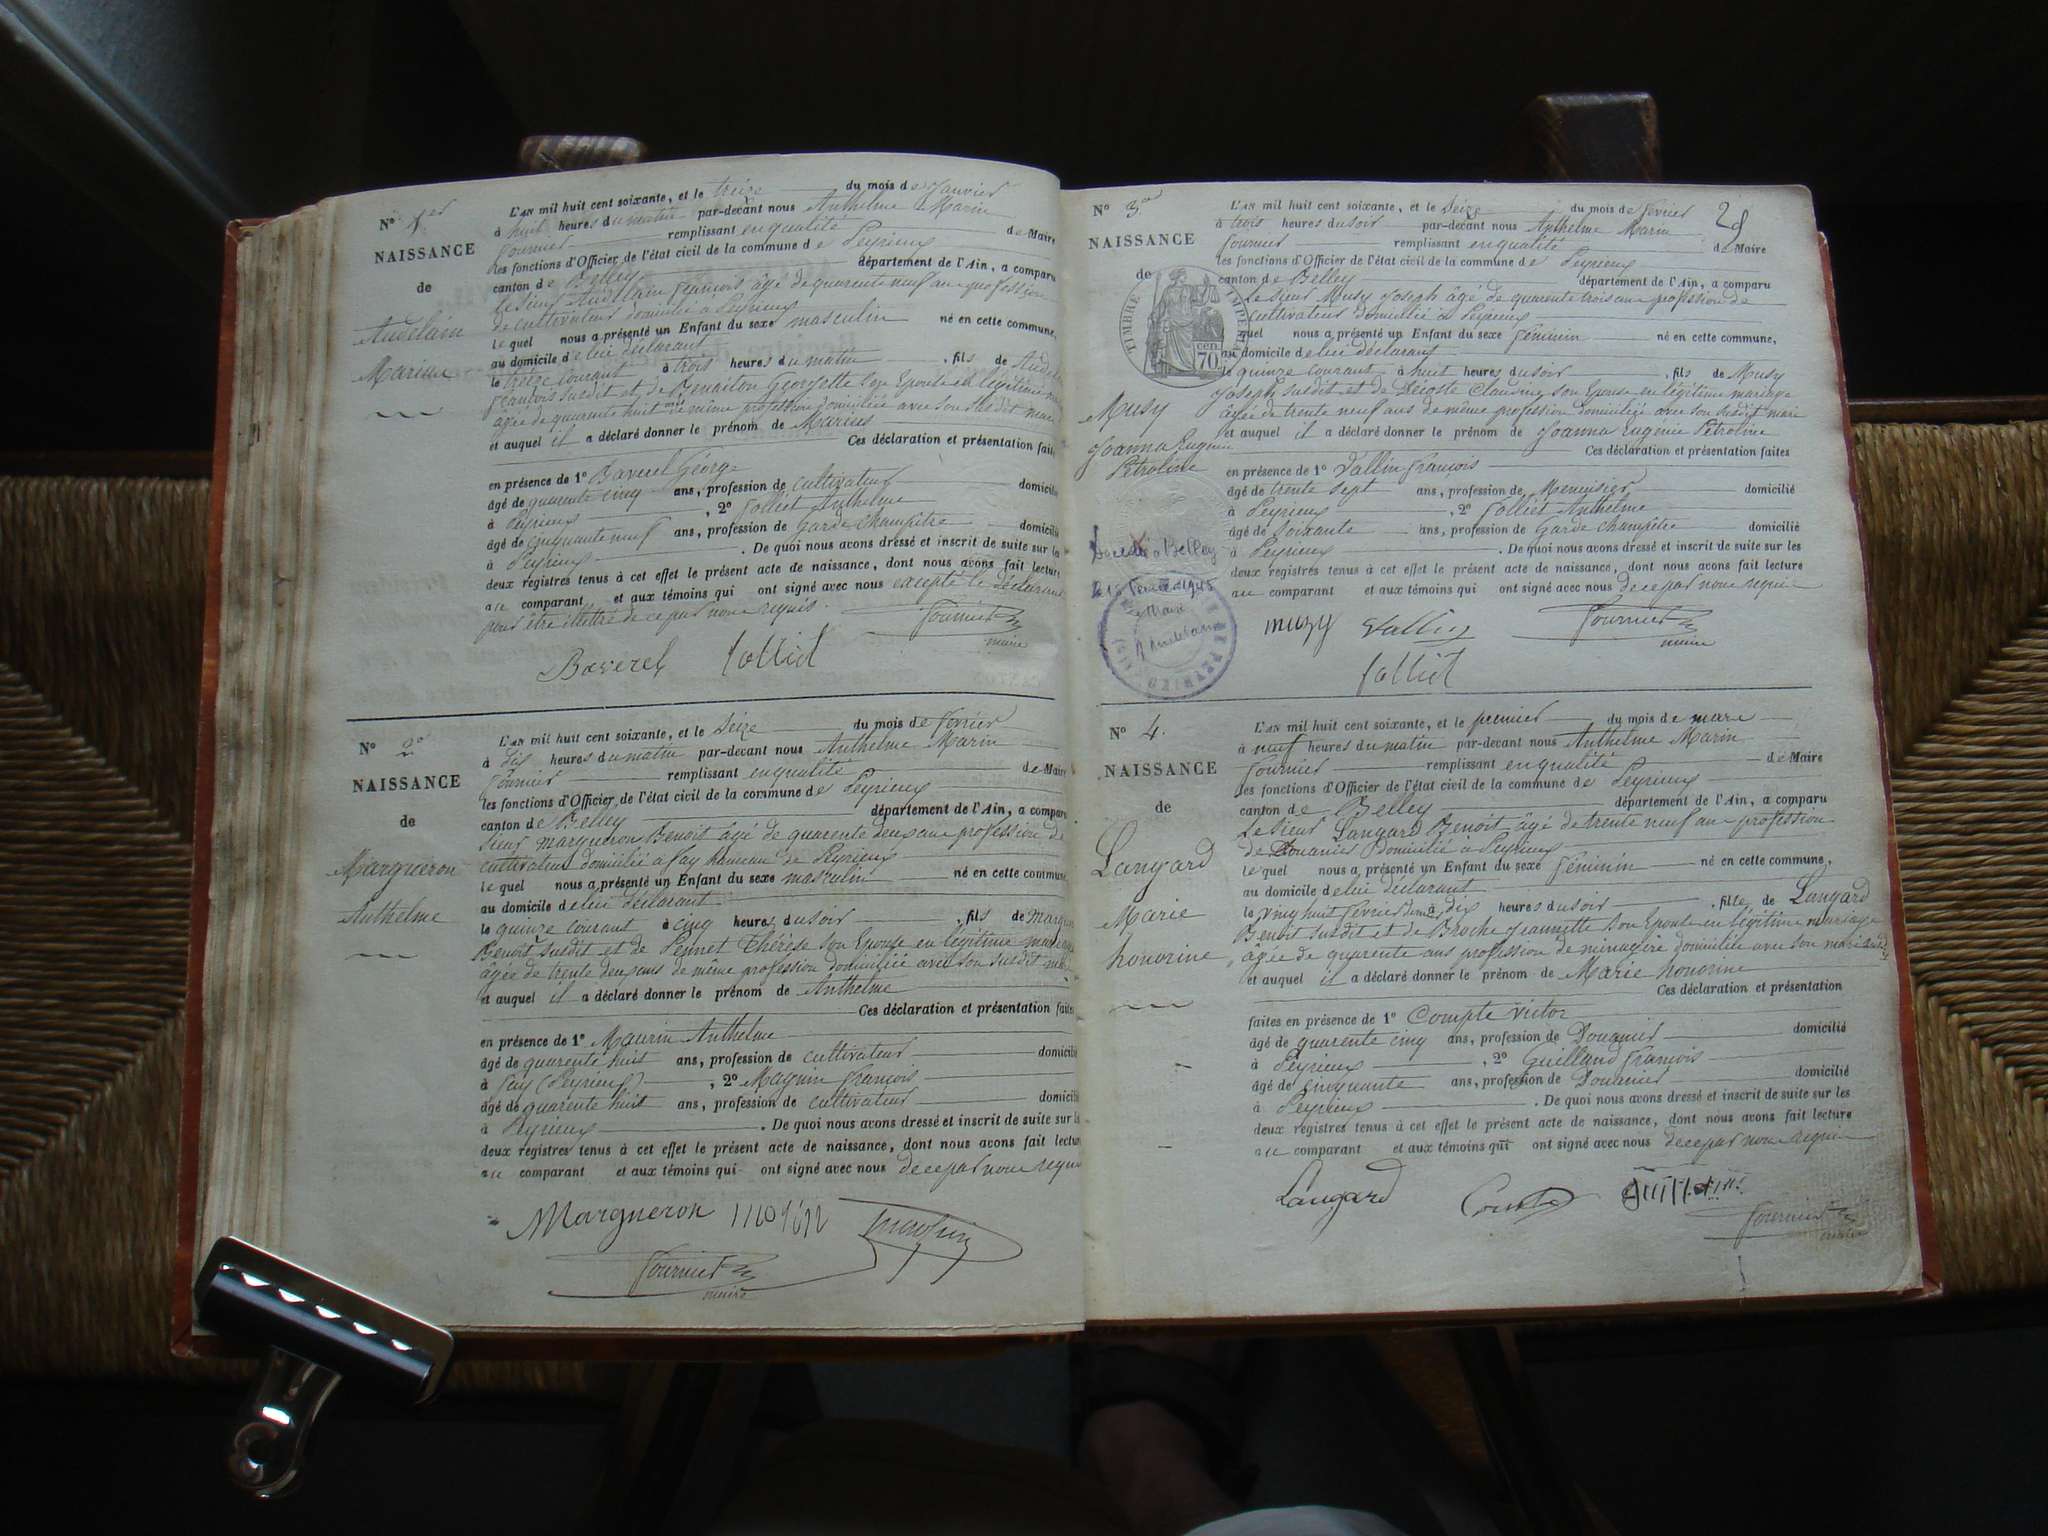 N° 1er
NAISSANCE
de
Audelain
Marius
L'AN mil huit cent soixante, et le treize du mois de Janvier
à huit heures du matin par-devant nous Anthelme Marin
Fournier remplissant en qualité de Maire
les fonctions d'Officier de l'état civil de la commune de Peyrieux
canton de Belley département de l'Ain, a comparu
le sieur Audelain François âgé de quarente neuf ans profession
de cultivateur domicilié à Peyrieux
le quel nous a présenté un Enfant du sexe masculin né en cette commune,
au domicile de lui déclarant
le treize courant à trois heures du matin, fils de
François susdit et de Georgette son Epouse en légitime
âgée de quarente huit ans de même profession domiciliée avec son susdit mari
et auquel il a déclaré donner le prénom de Marius
Ces déclaration et présentation faites
en présence de 1° Baverel George
âgé de quarente cinq ans, profession de cultivateur domicilié
à Peyrieux, 2° Jolliet Anthelme
âgé de cinquante neuf ans, profession de Garde champêtre domicilié
à Peyrieux. De quoi nous avons dressé et inscrit de suite sur les
deux registres tenus à cet effet le présent acte de naissance, dont nous avons fait lecture
au comparant et aux témoins qui ont signé avec nous excepté le déclarant
pour être illettré de ce par nous requis.
Fournier
maire
Baverel Jolliet
N° 2e
NAISSANCE
de
Margueron
Anthelme
L'AN mil huit cent soixante, et le Seize du mois de Février
à dix heures du matin par-devant nous Anthelme Marin
Fournier remplissant en qualité de Maire
les fonctions d'Officier de l'état civil de la commune de Peyrieux
canton de Belley département de l'Ain, a comparu
sieur Margueron Benoit âgé de quarente deux ans profession de
cultivateur domicilié à Fay hameau de Peyrieux
le quel nous a présenté un Enfant du sexe masculin né en cette commune,
au domicile de lui déclarant
le quinze courant à cinq heures du soir, fils de
Benoit susdit et de Pennet Thérèse son Epouse en légitime mariage
âgée de trente deux ans de même profession domiciliée avec son susdit mari
et auquel il a déclaré donner le prénom de Anthelme
Ces déclaration et présentation faites
en présence de 1° Maurin Anthelme
âgé de quarente huit ans, profession de cultivateur domicilié
à Fay (Peyrieux), 2° Magnin François
âgé de quarente huit ans, profession de cultivateur domicilié
à Peyrieux. De quoi nous avons dressé et inscrit de suite sur les
deux registres tenus à cet effet le présent acte de naissance, dont nous avons fait lecture
au comparant et aux témoins qui ont signé avec nous de ce par nous requis
Margueron
Fournier
maire
29
N° 3e
NAISSANCE
de
TIMBRE IMPERIAL
70 cen.
Musy
Joanna Eugénie
Pétroline
L'AN mil huit cent soixante, et le Seize du mois de Février
à trois heures du soir par-devant nous Anthelme Marin
Fournier remplissant en qualité de Maire
les fonctions d'Officier de l'état civil de la commune de Peyrieux
canton de Belley département de l'Ain, a comparu
le sieur Musy Joseph âgé de quarente trois ans profession de
cultivateur domicilié à Peyrieux
quel nous a présenté un Enfant du sexe Féminin né en cette commune,
au domicile de lui déclarant
le quinze courant à huit heures du soir, fils de Musy
Joseph susdit et de Décoste Claudine son Epouse en légitime mariage
âgée de trente neuf ans de même profession domiciliée avec son susdit mari
et auquel il a déclaré donner le prénom de Joanna Eugénie Pétroline
Ces déclaration et présentation faites
en présence de 1° Vallin François
âgé de trente sept ans, profession de Menuisier domicilié
à Peyrieux, 2° Jolliet Anthelme
âgé de Soixante ans, profession de Garde champêtre domicilié
à Peyrieux. De quoi nous avons dressé et inscrit de suite sur les
deux registres tenus à cet effet le présent acte de naissance, dont nous avons fait lecture
au comparant et aux témoins qui ont signé avec nous de ce par nous requis
Décédée à Belley
1945
Le Maire
muzy Vallin Fournier
maire
Jolliet
N° 4.
NAISSANCE
de
Langard
Marie
honorine
L'AN mil huit cent soixante, et le premier du mois de mars
à neuf heures du matin par-devant nous Anthelme Marin
Fournier remplissant en qualité de Maire
les fonctions d'Officier de l'état civil de la commune de Peyrieux
canton de Belley département de l'Ain, a comparu
le sieur Langard Benoit âgé de trente neuf ans profession
de Douanier domicilié à Peyrieux
le quel nous a présenté un Enfant du sexe Féminin né en cette commune,
au domicile de lui déclarant
le vingt huit Février à dix heures du soir, fille de Langard
Benoit susdit et de Broche Jeannette son Epouse en légitime mariage
âgée de quarente ans profession de ménagère domiciliée avec son mari susdit
et auquel il a déclaré donner le prénom de Marie honorine
Ces déclaration et présentation
faites en présence de 1° Compte victor
âgé de quarente cinq ans, profession de Douanier domicilié
à Peyrieux, 2° Guilland François
âgé de cinquante ans, profession de Douanier domicilié
à Peyrieux. De quoi nous avons dressé et inscrit de suite sur les
deux registres tenus à cet effet le présent acte de naissance, dont nous avons fait lecture
au comparant et aux témoins qui ont signé avec nous de ce par nous requis
Langard
Fournier
maire